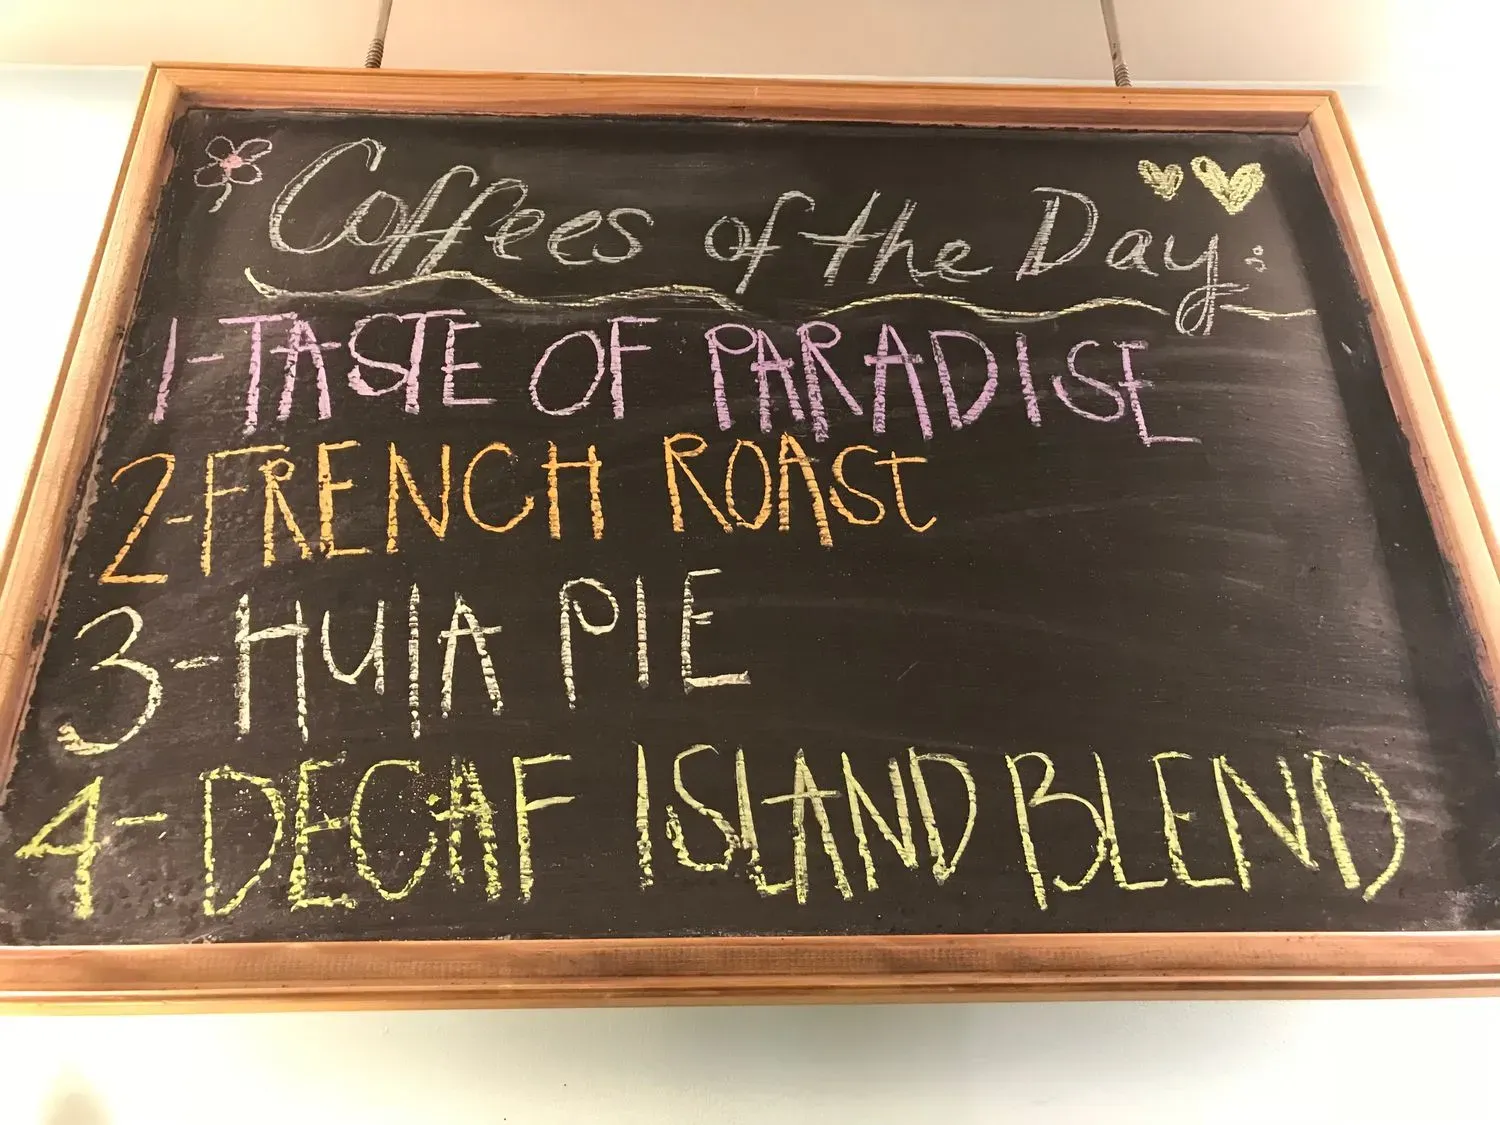 Coffees of the Day:
1-TASTE OF PARADISE
2-FRENCH ROAST
3-HUIA PIE
4-DECAF ISLAND BLEND